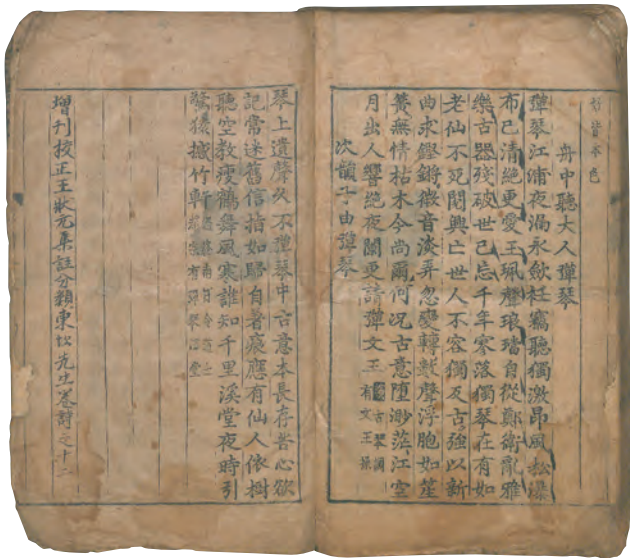 皆本色
舟中聽大人彈琴
彈琴江浦夜漏永歛袵竊聽獨激昂風松瀑
布已清絶更愛王珮聲琅璫自從鄭衛亂雅
樂古器殘破世已忘千年寥落獨琴在有如
老仙不死閱興亡世人不容獨反古強以新
曲求鏗鏘微音淡弄忽變轉數聲浮胞如笙
簧無情枯木今尚爾何况古意墮渺茫江空
月出人響絶夜闌更請彈文王古琴調有文王操
次韻子由彈琴
琴上遺聲久不彈琴中古意本長存苦心欲
記常迷舊信指如歸自著痕應有仙人依樹
聽空教瘦鶴舞風寒誰知千里溪堂夜時引
驚猿撼竹軒過終南日令道士趙宗有彈琴溪堂
增刊校正王狀元集註分類東坡先生卷詩之十二